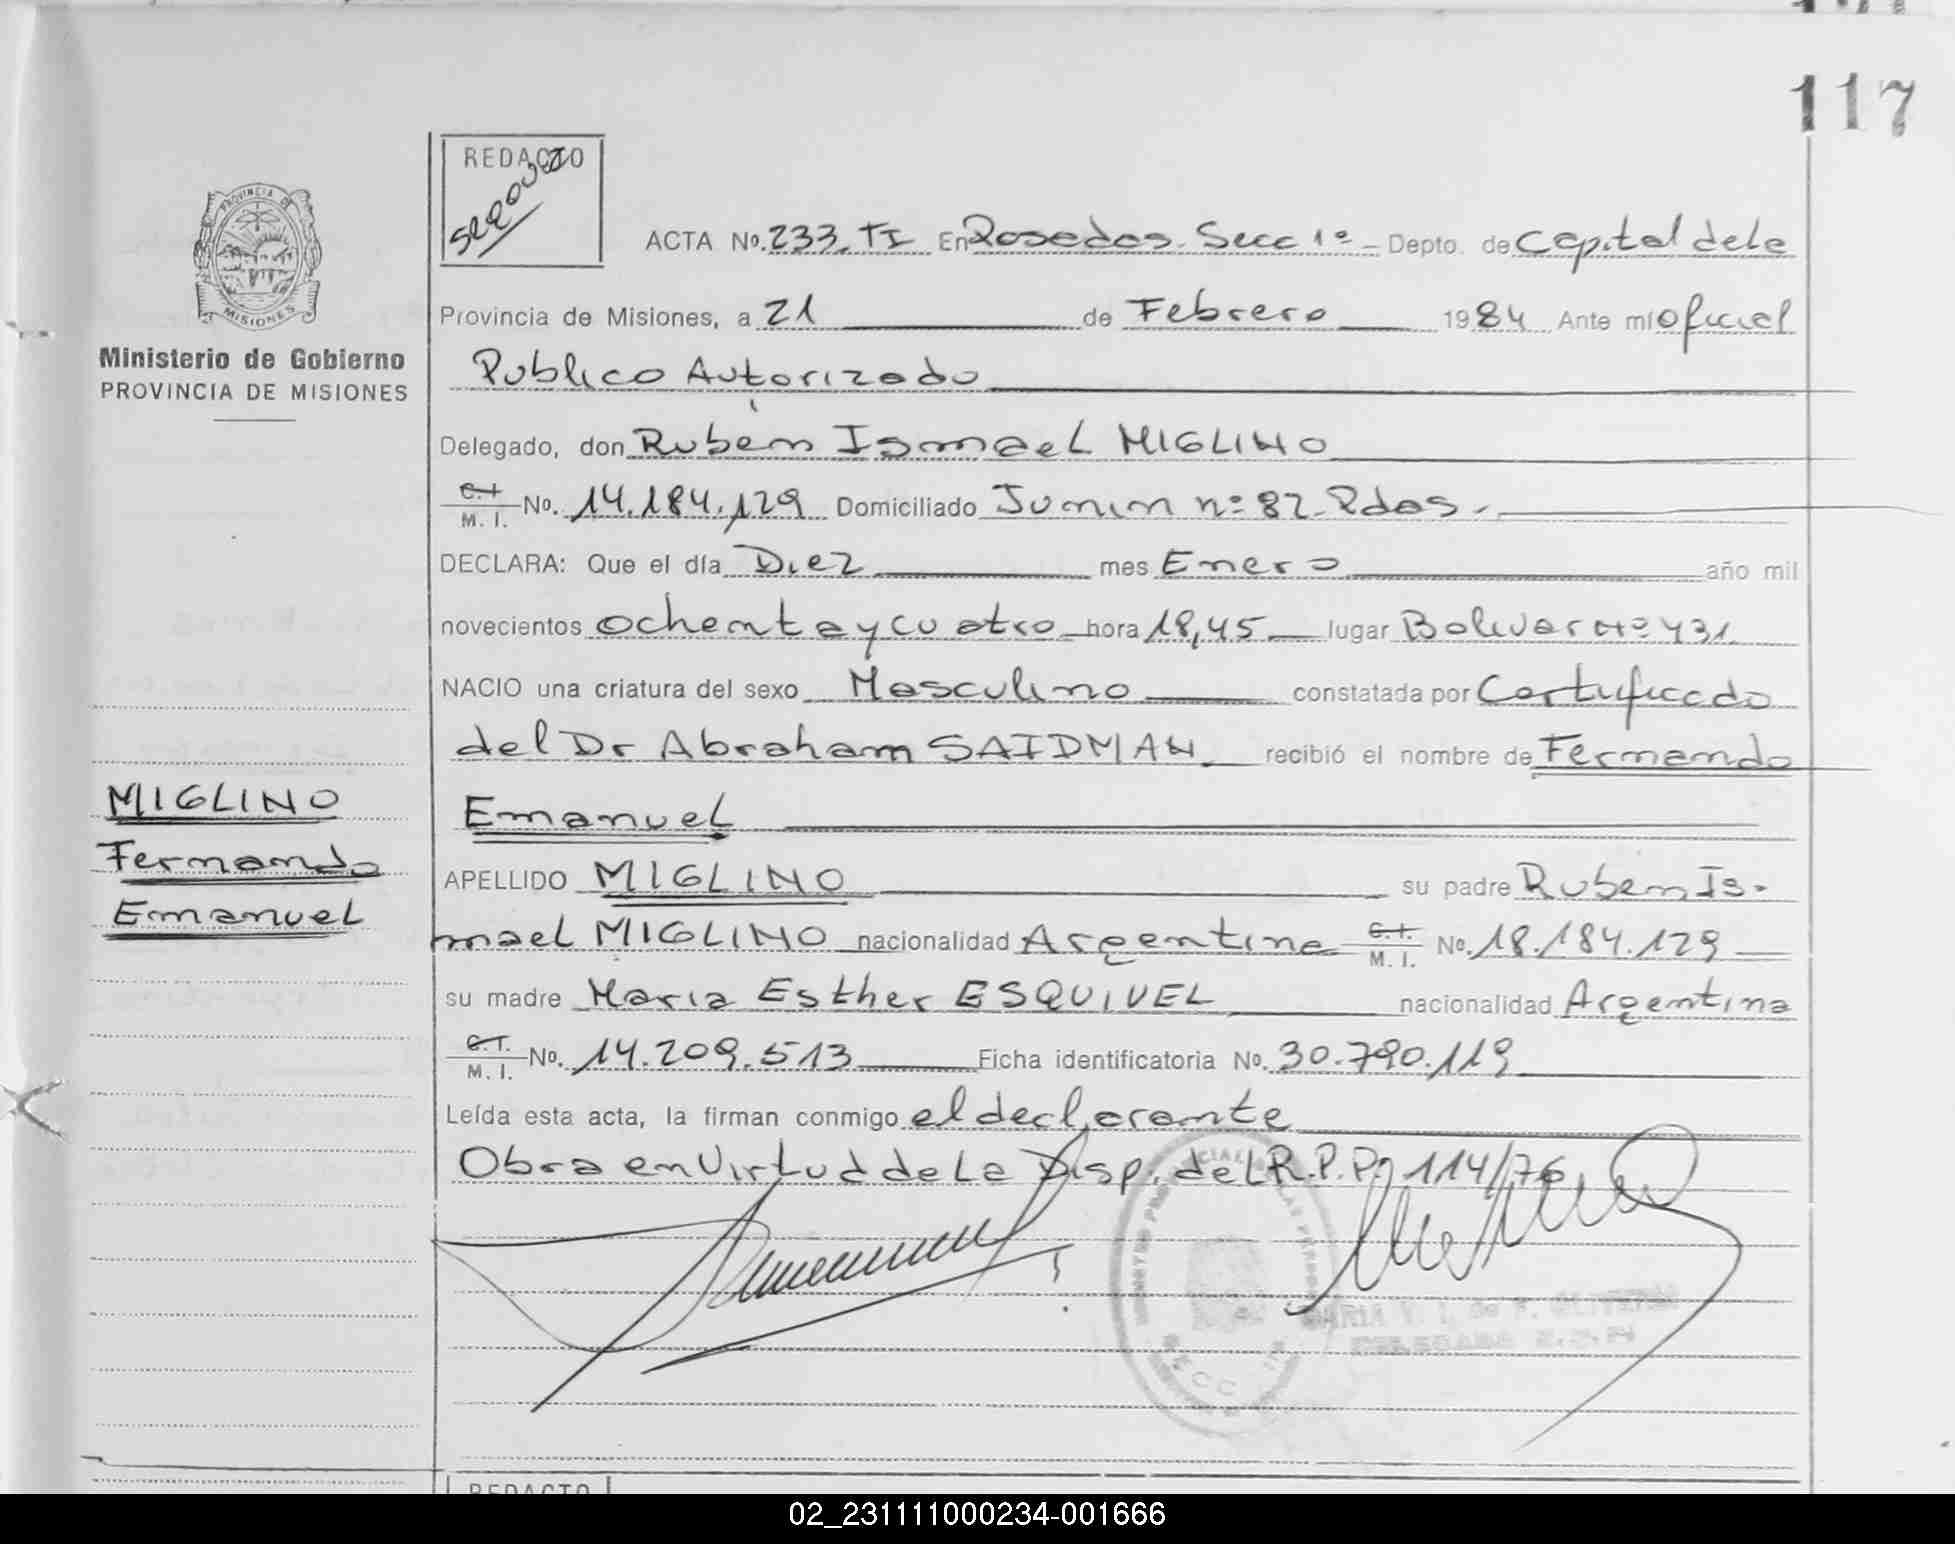 117
REDACTO
PROVINCIA DE
MISIONES
Ministerio de Gobierno
PROVINCIA DE MISIONES
ACTA No. 233. TI En Posadas. Secc 1º Depto. de Capital de la
Provincia de Misiones, a 21 de Febrero 1984 Ante mí oficial
Publico Autorizado
Delegado, don Rubén Ismael MIGLINO
C.I. M. I. No. 14.184.129 Domiciliado Junin nº 82. Pdas.
DECLARA: Que el día Diez mes Enero año mil
novecientos ochenta y cuatro hora 18,45 lugar Bolivar Nº 431
NACIO una criatura del sexo Masculino constatada por Certificado
del Dr Abraham SAIDMAN recibió el nombre de Fernando
Emanuel
MIGLINO
Fernando
Emanuel
APELLIDO MIGLINO su padre Ruben Is-
mael MIGLINO nacionalidad Argentina C.I. M. I. No. 18.184.129
su madre Maria Esther ESQUIVEL nacionalidad Argentina
C.I. M. I. No. 14.209.513 Ficha identificatoria No. 30.790.119
Leída esta acta, la firman conmigo el declarante
Obra en Virtud de La Disp. del R.P.P. 114/76
SECC
REDACTO
02_231111000234-001666